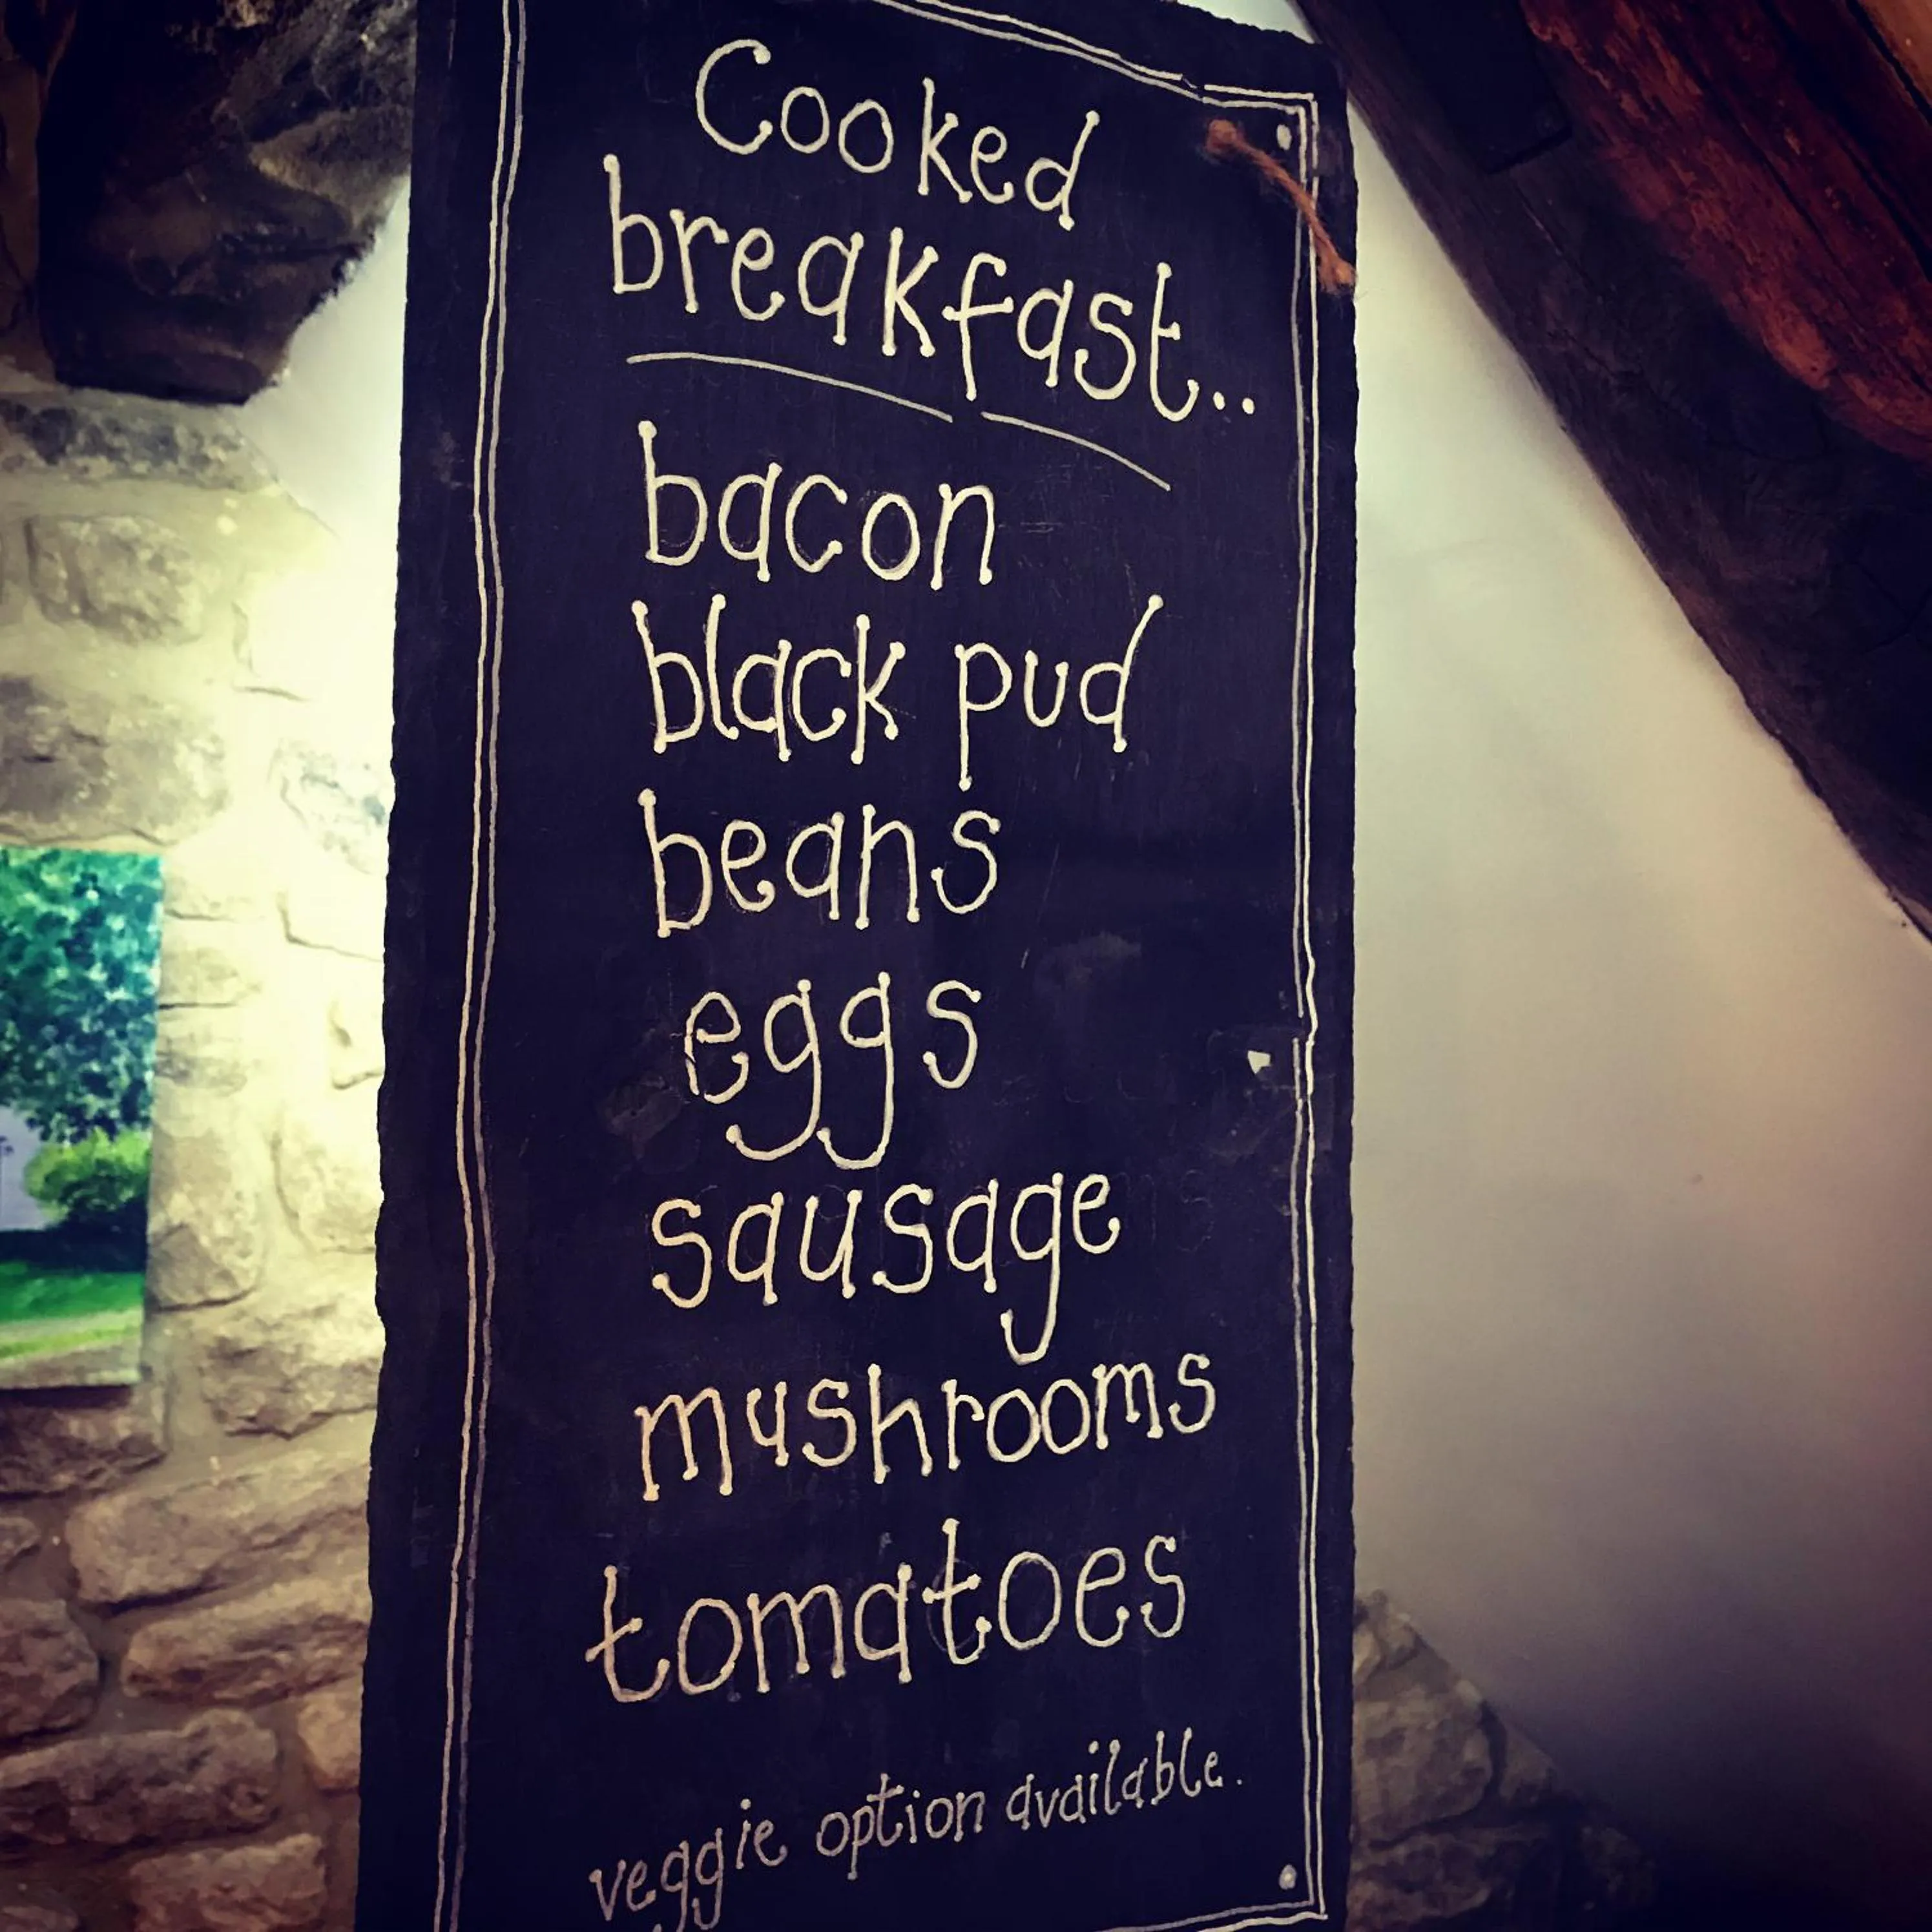 Cooked
breakfast..
bacon
black pud
beans
eggs
sausage
mushrooms
tomatoes
veggie option available.